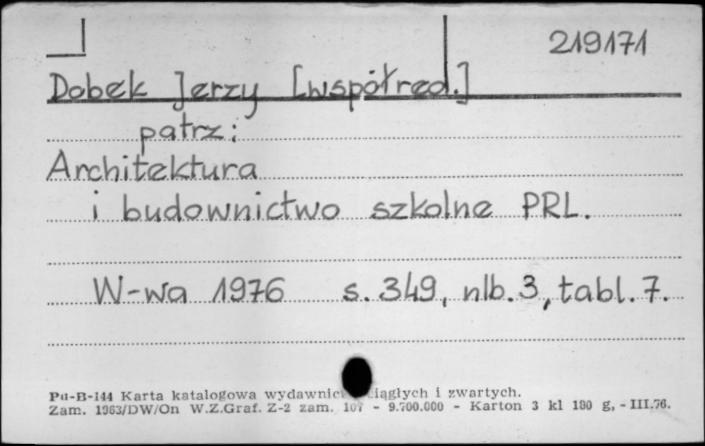 219171
Dobek Jerzy [współred.]
patrz:
Architektura
i budownictwo szkolne PRL.
W-wa 1976 s. 349, nlb. 3, tabl. 7.
Pu-B-144 Karta katalogowa wydawnic ciągłych i zwartych.
Zam. 1963/DW/On W.Z.Graf. Z-2 zam. 107 - 9.700.000 - Karton 3 kl 180 g, - III.76.